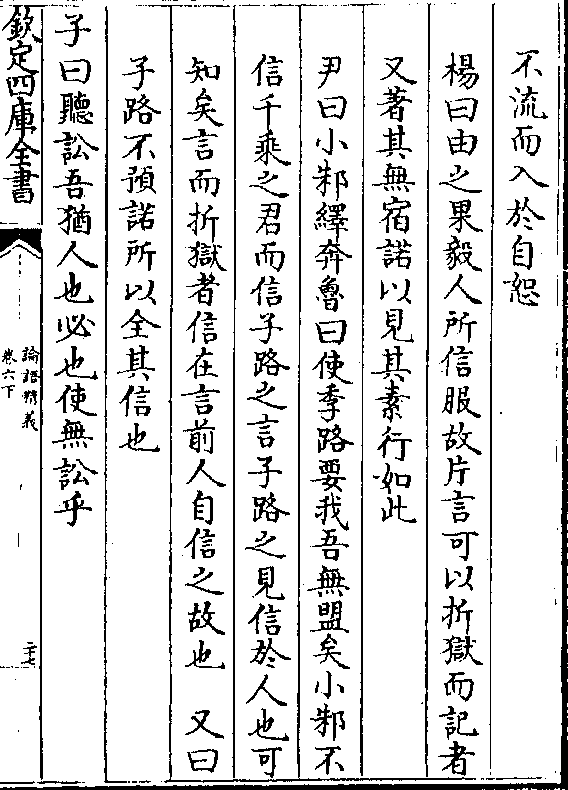 不流而入於自恕
楊曰由之果毅人所信服故片言可以折獄而記者
又著其無宿諾以見其素行如此
尹曰小邾繹奔魯曰使季路要我吾無盟矣小邾不
信千乘之君而信子路之言子路之見信於人也可
知矣言而折獄者信在言前人自信之故也 又曰
子路不預諾所以全其信也
子曰聽訟吾猶人也必也使無訟乎
欽定四庫全書
論語精義
卷六下
二十七